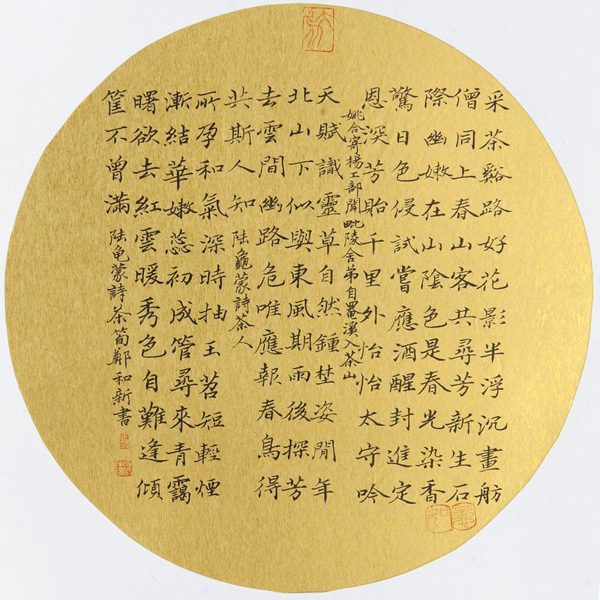 采茶谿路好花影半浮沉畫舫
僧同上春山客共尋芳新生石
際幽嫩在山陰色是春光染香
驚日色侵試嘗應酒醒封進定
恩深芳貽千里外怡怡太守吟
姚合寄楊工部聞毗陵舍弟自罨溪入茶山
天賦識靈草自然鍾埜姿閒年
北山下似與東風期雨後探芳
去雲間幽路危唯應報春鳥得
共斯人知 陸龜蒙詩茶人
所孕和氣深時抽玉苕短輕煙
漸結華嫩蕊初成管尋來青靄
曙欲去紅雲暖秀色自難逢傾
筐不曾滿 陆龟蒙詩茶筍鄭和新書